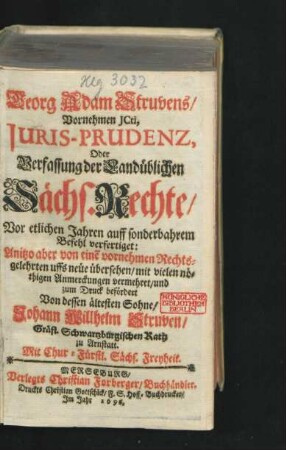 Hg 3032
Georg Adam Struvens/
Vornehmen JCti,
JURIS-PRUDENZ,
Oder
Verfassung der Landüblichen
Sächs. Rechte/
Vor etlichen Jahren auff sonderbahrem
Befehl verfertiget:
Anitzo aber von eine vornehmen Rechts-
gelehrten uffs neue übersehen/ mit vielen nö-
thigen Anmerckungen vermehret/ und
zum Druck befördert
Von dessen ältesten Sohne/
Johann Willhelm Struven/
Gräfl. Schwartzbürgischen Rath
zu Arnstatt.
Mit Chur-Fürstl. Sächs. Freyheit.
KÖNIGLICHE
BIBLIOTHEK
BERLIN
MERSEBURG/
Verlegts Christian Forberger/ Buchhändler.
Druckts Christian Gottschick/ F. S. Hoff-Buchdrucker/
Im Jahr 1696.